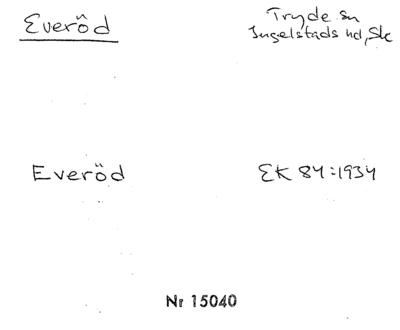 Everöd
Tryde sn
Ingelstads hd, Sk
Everöd
EK 84:1934
Nr 15040